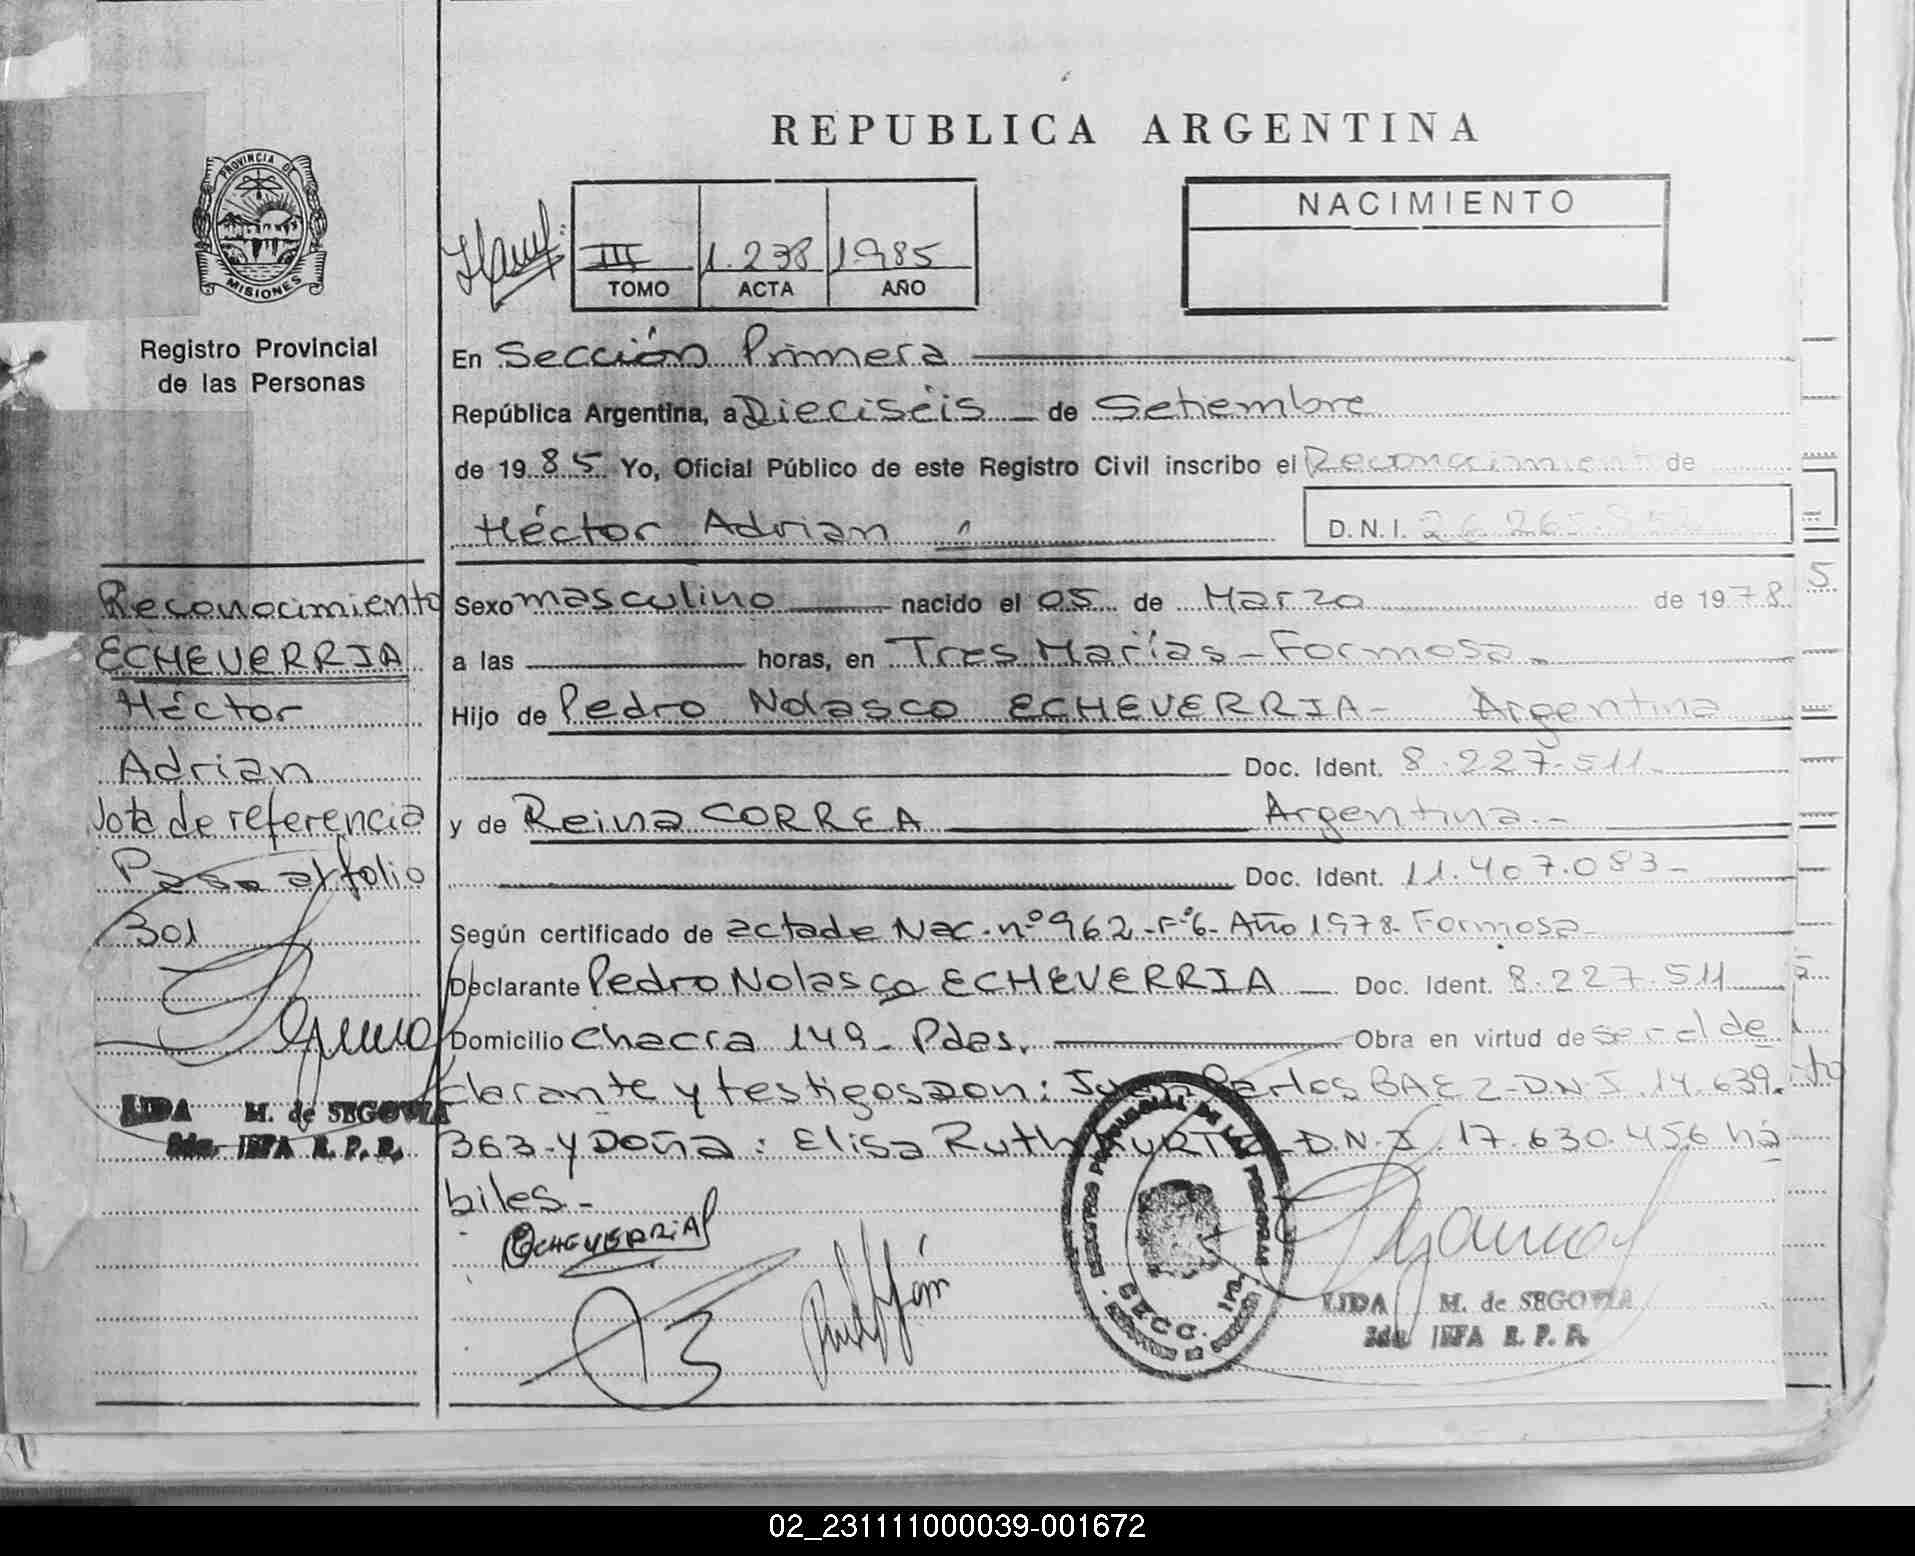 REPUBLICA ARGENTINA
PROVINCIA DE
MISIONES
Registro Provincial
de las Personas
III 1.238 1985
TOMO ACTA AÑO
NACIMIENTO
En Sección Primera
República Argentina, a Dieciséis de Setiembre
de 1985 Yo, Oficial Público de este Registro Civil inscribo el Reconocimiento de
Héctor Adrian
D.N.I.
Sexo masculino nacido el 05 de Marzo de 1978
a las horas, en Tres Marías - Formosa.
Hijo de Pedro Nolasco ECHEVERRIA - Argentina
Doc. Ident. 8.227.511
y de Reina CORREA Argentina.-
Doc. Ident. 11.407.083-
Según certificado de acta de Nac. nº 962 - Fº6 - Año 1978 - Formosa
Declarante Pedro Nolasco ECHEVERRIA Doc. Ident. 8.227.511
Domicilio Chacra 149 - Pdas. Obra en virtud de ser el de
clarante y testigos son: Juan Carlos BAEZ - D.N.I. 14.639.
363 - y Doña: Elisa Ruth D.N.I. 17.630.456 há
biles.-
ECHEVERRIA
LIDA M. de SEGOVIA
2da. JEFA R. P. P.
Reconocimiento
ECHEVERRIA
Héctor
Adrian
Nota de referencia
Pasa al folio
301
LIDA M. de SEGOVIA
2da. JEFA R. P. P.
02_231111000039-001672